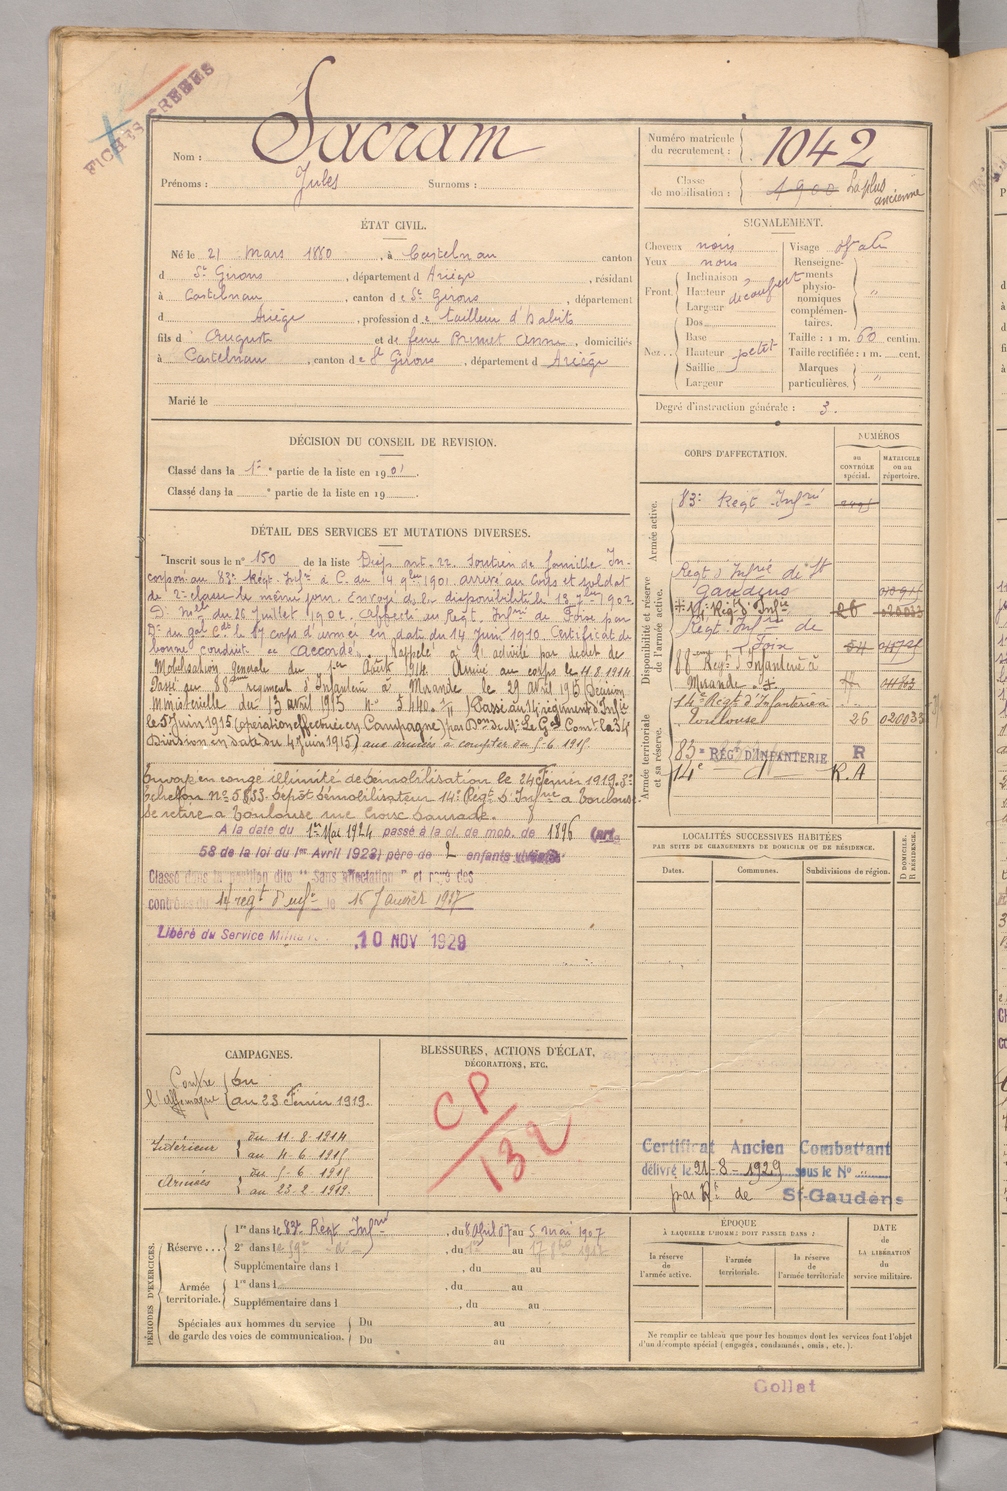 FICHES CRÉÉES
Nom : Sacram
Prénoms : Jules Surnoms :
Numéro matricule du recrutement : 1042
Classe de mobilisation : 1900 La plus ancienne
ÉTAT CIVIL.
Né le 21 Mars 1880, à Castelnau canton
d St Girons, département d Ariège, résidant
à Castelnau, canton de St Girons, département
d Ariège, profession de tailleur d'habits
fils d Auguste et de feue Anne, domiciliés
à Castelnau, canton de St Girons, département d Ariège
Marié le
SIGNALEMENT.
Cheveux noirs Visage ovale
Yeux noirs Renseigne-
Inclinaison ments
Front. Hauteur découvert physio-
Largeur nomiques
Dos complémen- "
Base taires.
Nez Hauteur petit Taille : 1 m. 60 centim.
Saillie Taille rectifiée : 1 m. cent.
Largeur Marques particulières. "
Degré d'instruction générale : 3.
DÉCISION DU CONSEIL DE REVISION.
Classé dans la 1re partie de la liste en 1901.
Classé dans la e partie de la liste en 19
DÉTAIL DES SERVICES ET MUTATIONS DIVERSES.
Inscrit sous le n° 150 de la liste Disp. art. 22. Soutien de famille In-
corporé au 83e Régt. Infie à C. du 14 9bre 1901. arrivé au Corps et soldat
de 2e classe le même jour. Envoyé dans la disponibilité le 1902
du 26 Juillet 1902. Affecté au Régt. Infrie de Foix par
Don du Gal Cdt le 17 corps d'armée en date du 14 Juin 1910. Certificat de
bonne conduite "accordé". Rappelé à l'activité par décret de
Mobilisation Générale du 1er Août 1914. Arrivé au corps le 11.8.1914
Passé au 88ème régiment d'Infanterie à Mirande le 29 avril 1915 Décision
Ministérielle du 13 avril 1915 n° 5440. Passé au 14e régiment d'Infie
le 5 Juin 1915 (opération effectuée en Campagne) par Don de Mr Le Gal Comt la 34e
Division en date du 4 Juin 1915) aux armées à compter du 5-6-1915
Envoyé en congé illimité de démobilisation le 24 Février 1919. 3e
échelon No 5833. Dépôt démobilisateur 14e Régt d'Infrie à Toulouse
Se retire à Toulouse rue Croix Daurade. 8
A la date du 1er Mai 1924 passé à la cl. de mob. de 1896 (art.
58 de la loi du 1er Avril 1923) père de 2 enfants vivants
Classé dans la position dite "Sans affectation" et rayé des
contrôles du 14e régt d'infie le 16 Janvier 1927
Libéré du Service Militaire 10 NOV 1929
CORPS D'AFFECTATION.
NUMÉROS
au CONTRÔLE spécial.
MATRICULE ou au RÉPERTOIRE.
Armée active.
83e Régt Infrie
Disponibilité et réserve de l'armée active.
Régt d'Infrie de St
Gaudens
Régt d'Infie 26 020033
Régt. Infrie de
Foix
88ème Régt d'Infanterie à
Mirande
Armée territoriale et sa réserve.
14e Régt d'Infanterie à
Toulouse 26 020033
83e RÉGt D'INFANTERIE R
14e dt R.A
LOCALITÉS SUCCESSIVES HABITÉES
PAR SUITE DE CHANGEMENTS DE DOMICILE OU DE RÉSIDENCE.
Dates. Communes. Subdivisions de région. D DOMICILE. R RÉSIDENCE.
CAMPAGNES.
Contre l'Allemagne du
au 23 Février 1919.
Intérieur du 11-8-1914
au 4-6-1915
Armées du 5-6-1915
au 23-2-1919.
BLESSURES, ACTIONS D'ÉCLAT,
DÉCORATIONS, ETC.
CP
132
Certificat Ancien Combattant
délivré le 21-8-1929 sous le No
par Rt de St-Gaudens
PÉRIODES D'EXERCICES.
Réserve... 1re dans le 83e Régt Infrie, du 8 Avril 07 au 5 mai 1907
2e dans le 59e -d°-, du au
Supplémentaire dans l , du au
Armée territoriale. 1re dans l , du au
Supplémentaire dans l , du au
Spéciales aux hommes du service Du au
de garde des voies de communication. Du au
ÉPOQUE
À LAQUELLE L'HOMME DOIT PASSER DANS :
la réserve de l'armée active.
l'armée territoriale.
la réserve de l'armée territoriale
DATE de LA LIBÉRATION du service militaire.
Ne remplir ce tableau que pour les hommes dont les services font l'objet
d'un décompte spécial (engagés, condamnés, omis, etc.).
Gollat